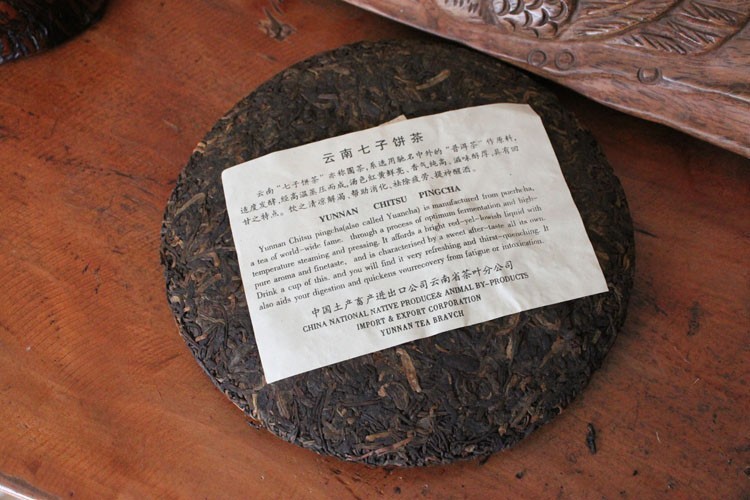 云南七子饼茶
云南“七子饼茶”亦称圆茶，系选用驰名中外的“普洱茶”作原料，
适度发酵，经高温蒸压而成。汤色红黄鲜亮，香气纯高，滋味醇厚，具有回
甘之特点。饮之清凉解渴，帮助消化，祛除疲劳，提神醒酒。
YUNNAN CHITSU PINGCHA
Yunnan Chitsu pingcha(also called Yuancha) is manufactured from puerhcha,
a tea of world-wide fame, through a process of optimum fermentation and high-
temperature steaming and pressing. It affords a bright red-yel-lowish liquid with
pure aroma and finetaste, and is characterised by a sweet after-taste all its own.
Drink a cup of this, and you will find it very refreshing and thirst-quenching. It
also aids your digestion and quickens yourrecovery from fatigue or intoxication.
中国土产畜产进出口公司云南省茶叶分公司
CHINA NATIONAL NATIVE PRODUCE& ANIMAL BY-PRODUCTS
IMPORT & EXPORT CORPORATION
YUNNAN TEA BRAVCH